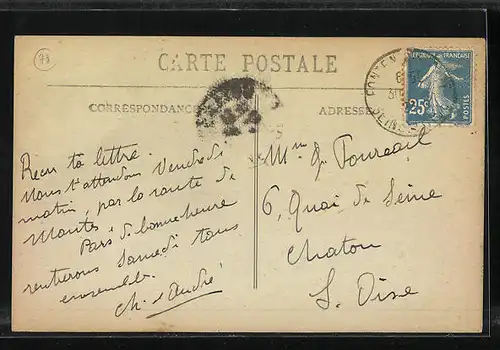 78
CARTE POSTALE
CORRESPONDANCE
ADRESSE
RÉPUBLIQUE FRANÇAISE
25c
POSTES
Recu ta lettre.
Nous t'attendons Vendredi
matin, par la route de
Mantes.
Pars de bonne heure
rentrerons Samedi tous
ensemble.
Ch. André
6, Quai de Seine
Chatou
S. Oise